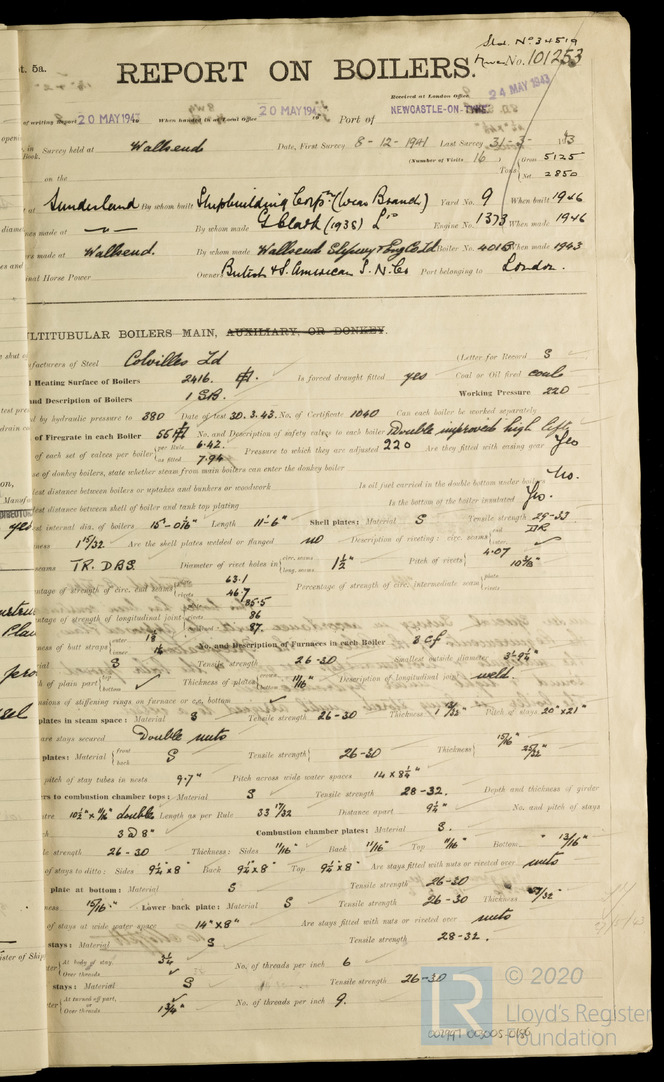 Sld. No 34519
t. 5a.
Nwc No. 101253
REPORT ON BOILERS.
Received at London Office 24 MAY 1943
of writing Report 20 MAY 194 When handed in at Local Office 20 MAY 194 Port of NEWCASTLE-ON-TYNE
in Survey held at Wallsend Date, First Survey 8-12-1941 Last Survey 31-3- 1943
Book.
(Number of Visits 16) Gross 5125
on the Tons Net 2850
at Sunderland By whom built Shipbuilding Corpn (Wear Branch) Yard No. 9 When built 1946
made at By whom made G Clark (1938) Ld Engine No. 1373 When made 1946
made at Wallsend. By whom made Wallsend Slipway & Eng Co Ld Boiler No. 4016 When made 1943
nal Horse Power Owners British & S. American S. N. Co Port belonging to London.
ULTITUBULAR BOILERS MAIN, AUXILIARY, OR DONKEY.
facturers of Steel Colvilles Ld (Letter for Record S
Heating Surface of Boilers 2416. Is forced draught fitted yes Coal or Oil fired coal
and Description of Boilers 1 SB. Working Pressure 220
by hydraulic pressure to 380 Date of test 30.3.43. No. of Certificate 1040 Can each boiler be worked separately
of Firegrate in each Boiler 55 No. and Description of safety valves to each boiler Double improved high lift
of each set of valves per boiler per Rule 6.42. as fitted 7.94 Pressure to which they are adjusted 220 Are they fitted with easing gear Yes
se of donkey boilers, state whether steam from main boilers can enter the donkey boiler
lest distance between boilers or uptakes and bunkers or woodwork Is oil fuel carried in the double bottom under boilers No.
lest distance between shell of boiler and tank top plating Is the bottom of the boiler insulated Yes.
st internal dia. of boilers 15'-0 7/16" Length 11'-6" Shell plates: Material S Tensile strength 29-33
ness 1 15/32. Are the shell plates welded or flanged no Description of riveting: circ. seams end DR
seams TR. DBS. Diameter of rivet holes in circ. seams long. seams 1 1/2" Pitch of rivets 4.07 10 5/8"
ntage of strength of circ. end seams 63.1 rivets 46.7 Percentage of strength of circ. intermediate seam plate rivets
ntage of strength of longitudinal joint 85.5 rivets 86 87.
ness of butt straps outer inner No. and Description of Furnaces in each Boiler 3 Cf
S Tensile strength 26-30 Smallest outside diameter 3'-9 1/4"
h of plain part top bottom Thickness of plates 11/16" Description of longitudinal joint weld.
sions of stiffening rings on furnace or c.c. bottom
plates in steam space: Material S Tensile strength 26-30 Thickness 1 3/32" Pitch of stays 20" x 21"
are stays secured Double nuts
plates: Material front back S Tensile strength 26-30 Thickness 15/16" 25/32"
pitch of stay tubes in nests 9.7" Pitch across wide water spaces 14 x 8 1/4"
ers to combustion chamber tops: Material S Tensile strength 28-32. Depth and thickness of girder
tre 10 1/2" x 11/16" double Length as per Rule 33 17/32 Distance apart 9 1/4" No. and pitch of stays
3 @ 8" Combustion chamber plates: Material S.
le strength 26-30 Thickness: Sides 11/16" Back 11/16" Top 11/16" Bottom 13/16"
of stays to ditto: Sides 9 1/4" x 8" Back 9 1/4" x 8" Top 9 1/4" x 8" Are stays fitted with nuts or riveted over nuts
plate at bottom: Material S Tensile strength 26-30
ness 15/16." Lower back plate: Material S Tensile strength 26-30 Thickness
of stays at wide water space 14" x 8" Are stays fitted with nuts or riveted over nuts
stays: Material S Tensile strength 28-32.
At body of stay, Over threads 3 1/4 No. of threads per inch 6
stays: Material S Tensile strength 26-30
At turned off part, Over threads 1 3/4" No. of threads per inch 9.
© 2020
Lloyd's Register
Foundation